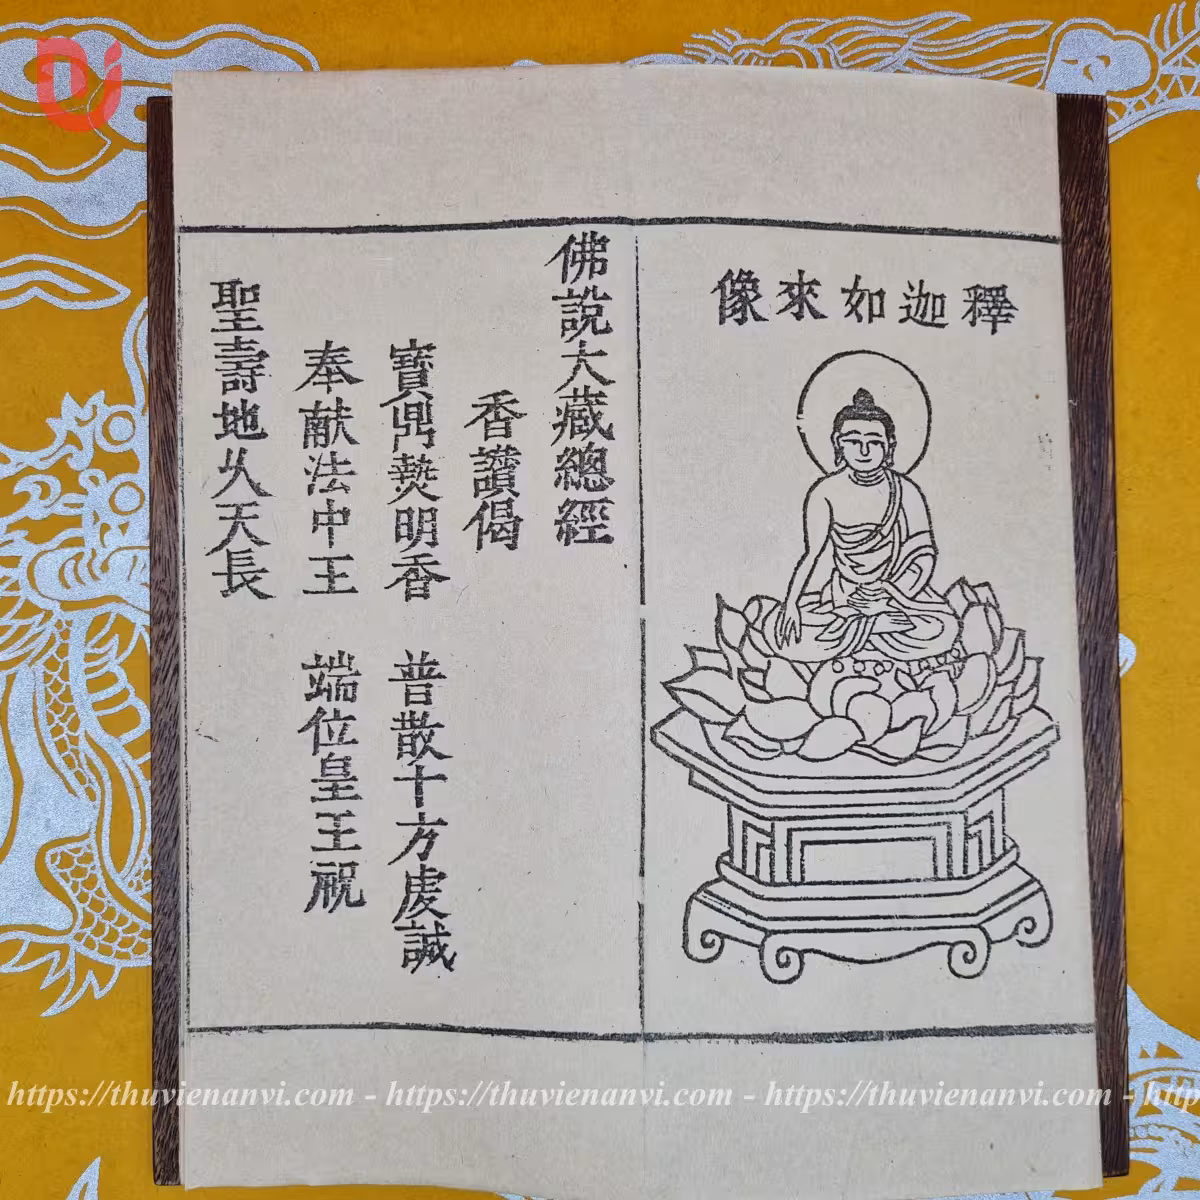 釋迦如來像
佛說大藏總經
香讚偈
寶鼎爇明香　普散十方虔誠
奉献法中王　端位皇王祝
聖壽地久天長
https://thuvienanvi.com - https://thuvienanvi.com - https://thuvienanvi.com - http